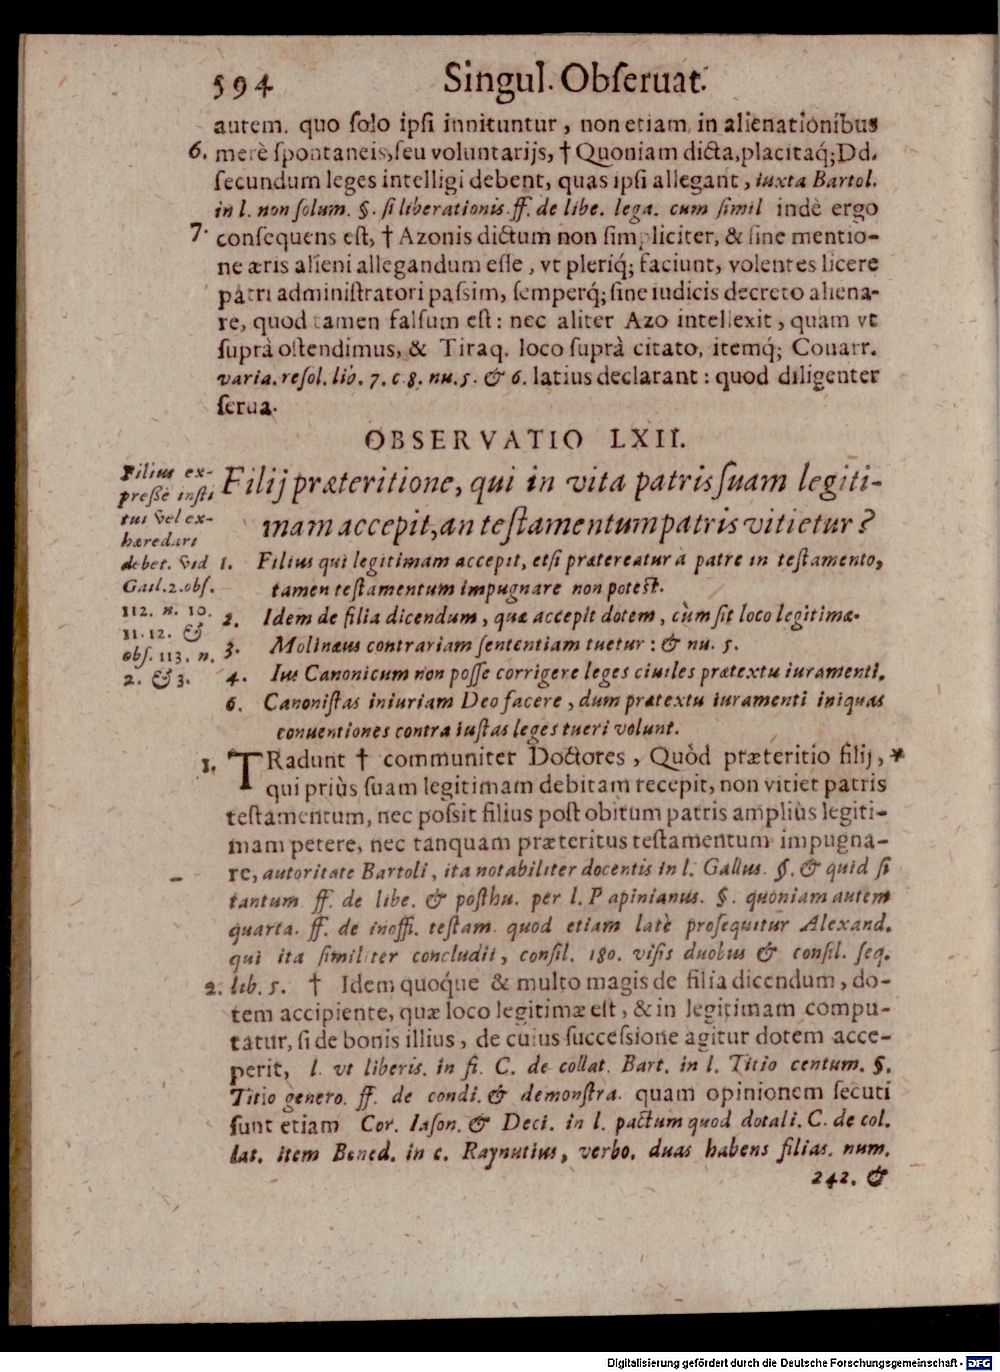 594 Singul. Obſeruat.
autem. quo ſolo ipſi innituntur, non etiam in alienationibus
6. merè ſpontaneis, ſeu voluntarijs, † Quoniam dicta, placitaq́; Dd.
ſecundum leges intelligi debent, quas ipſi allegant, iuxta Bartol.
in l. non ſolum. §. ſi liberationis. ff. de libe. lega. cum ſimil indè ergo
7. conſequens eſt, † Azonis dictum non ſimpliciter, & ſine mentio-
ne æris alieni allegandum eſſe, vt pleriq́; faciunt, volentes licere
patri adminiſtratori paſsim, ſemperq́; ſine iudicis decreto aliena-
re, quod tamen falſum eſt: nec aliter Azo intellexit, quam vt
ſuprà oſtendimus, & Tiraq. loco ſuprà citato, itemq́; Couarr.
varia. reſol. lib. 7. c. 8. nu. 5. & 6. latius declarant: quod diligenter
ſerua.
OBSERVATIO LXII.
Filius ex-
preſſè inſti
tui vel ex-
hæredari
debet. vid
Gail. 2. obſ.
112. n. 10.
11. 12. &
obſ. 113. n.
2. & 3.
Filij præteritione, qui in vita patris ſuam legiti-
mam accepit, an teſtamentum patris vitietur?
1. Filius qui legitimam accepit, etſi prætereatur à patre in teſtamento,
tamen teſtamentum impugnare non poteſt.
2. Idem de filia dicendum, quæ accepit dotem, cùm ſit loco legitimæ.
3. Molinæus contrariam ſententiam tuetur: & nu. 5.
4. Ius Canonicum non poſſe corrigere leges ciuiles prætextu iuramenti.
6. Canoniſtas iniuriam Deo facere, dum prætextu iuramenti iniquas
conuentiones contra iuſtas leges tueri volunt.
1. TRadunt † communiter Doctores, Quòd præteritio filij, *
qui priùs ſuam legitimam debitam recepit, non vitiet patris
teſtamentum, nec poſsit filius poſt obitum patris ampliùs legiti-
mam petere, nec tanquam præteritus teſtamentum impugna-
re, autoritate Bartoli, ita notabiliter docentis in l. Gallus. §. & quid ſi
tantum ff. de libe. & poſthu. per l. Papinianus. §. quoniam autem
quarta. ff. de inoffi. teſtam. quod etiam latè proſequitur Alexand.
qui ita ſimiliter concludit, conſil. 180. viſis duobus & conſil. ſeq.
2. lib. 5. † Idem quoq́ue & multo magis de filia dicendum, do-
tem accipiente, quæ loco legitimæ eſt, & in legitimam compu-
tatur, ſi de bonis illius, de cuius ſucceſsione agitur dotem acce-
perit, l. vt liberis. in fi. C. de collat. Bart. in l. Titio centum. §.
Titio genero. ff. de condi. & demonſtra. quam opinionem ſecuti
ſunt etiam Cor. Iaſon. & Deci. in l. pactum quod dotali. C. de col.
lat. item Bened. in c. Raynutius, verbo. duas habens filias. num.
242. &
Digitalisierung gefördert durch die Deutsche Forschungsgemeinschaft - DFG